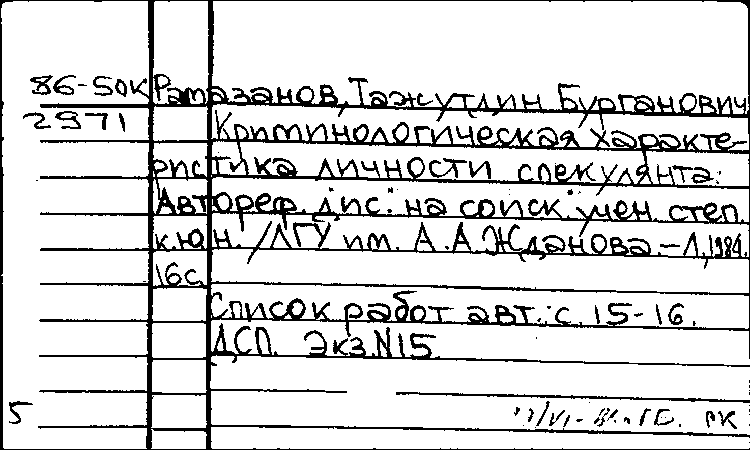 86-50к Рамазанов, Тажутдин Бурганович
2971 Криминологическая характе-
ристика личности спекулянта:
Автореф. дис. на соиск. учен. степ.
к.ю.н. /ЛГУ им. А.А.Жданова.-Л,1984.
16с.
Список работ авт.: с. 15-16.
ДСП. Экз.N15
5 РК